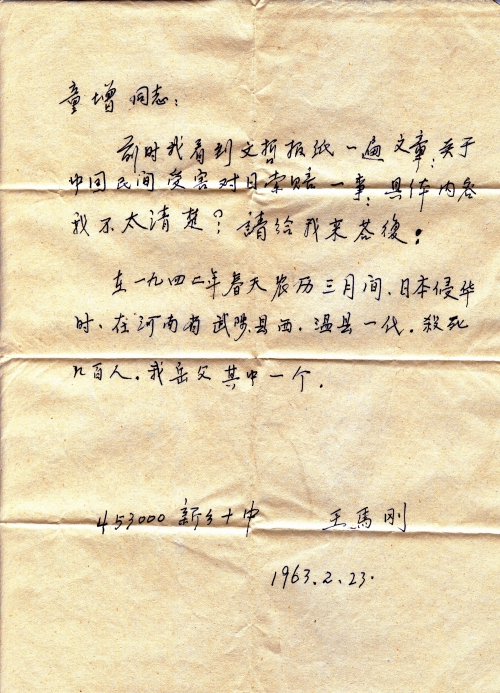 童增同志:
前时我看到文哲报纸一遍文章,关于
中国民间受害对日索赔一事,具体内容
我不太清楚?請给我来荅復。
在一九四二年春天农历三月间、日本侵华
时、在河南省武陟县西,温县一代,殺死
几百人。我岳父其中一个.
453000 新乡十中 王馬刚
1963.2.23.